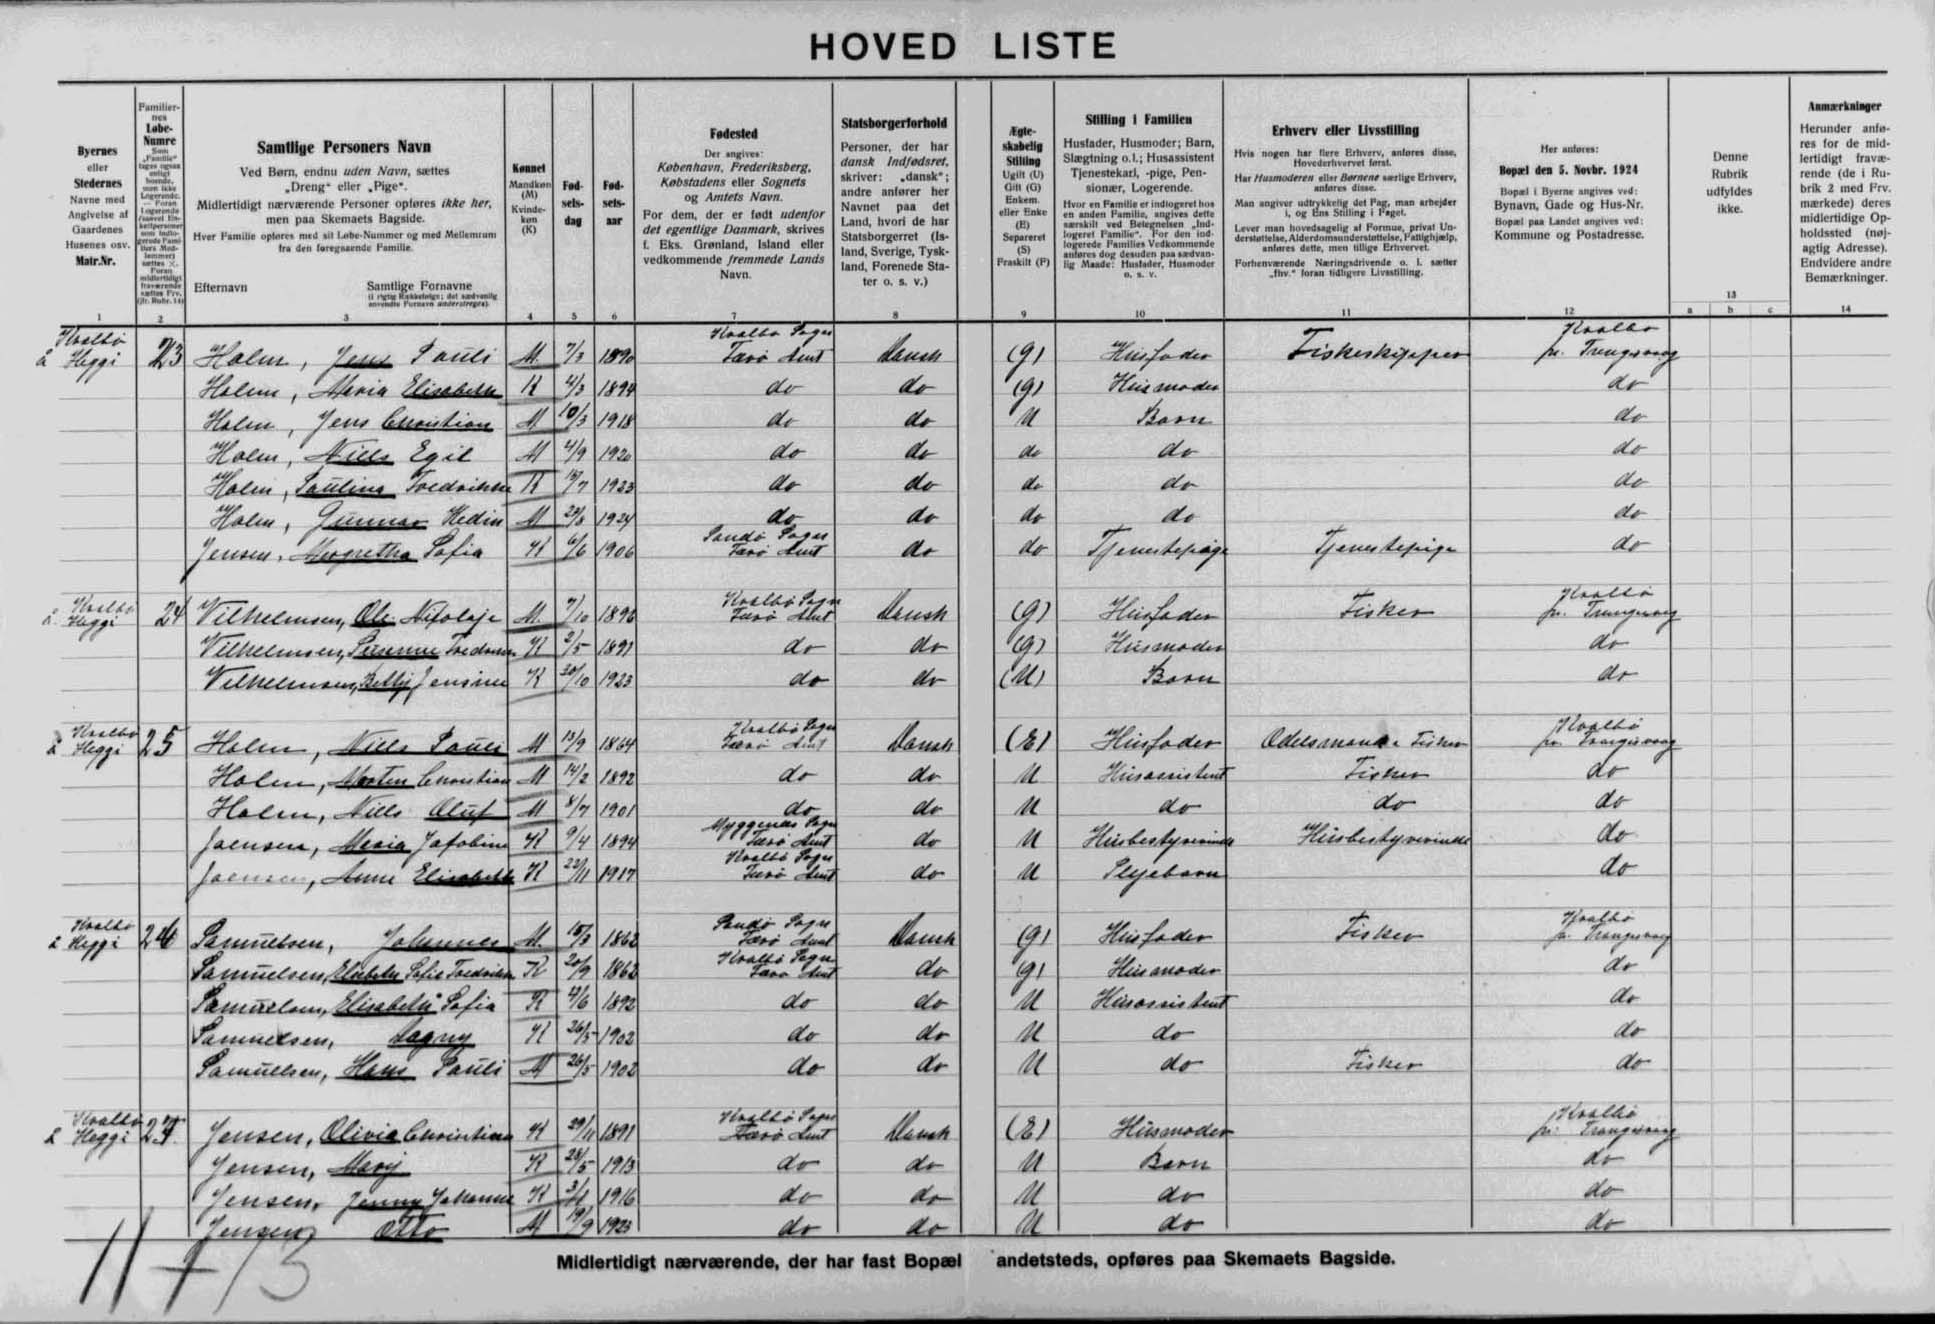 HOVED LISTE
Byernes
eller
Stedernes
Navne med
Angivelse af
Gaardenes
Husenes osv.
Matr.Nr.
1
Familier-
nes
Løbe-
Numre
2
Samtlige Personers Navn
Ved Børn, endnu uden Navn, sættes
„Dreng“ eller „Pige“.
Midlertidigt nærværende Personer opføres ikke her,
men paa Skemaets Bagside.
Hver Familie opføres med sit Løbe-Nummer og med Mellemrum
fra den foregaaende Familie.
Efternavn Samtlige Fornavne
(i rigtig Rækkefølge; det sædvanlig
anvendte Fornavn understreges).
3
Kønnet
Mandkøn
(M)
Kvinde-
køn
(K)
4
Fød-
sels-
dag
5
Fød-
sels-
aar
6
Fødested
Der angives:
København, Frederiksberg,
Købstadens eller Sognets
og Amtets Navn.
For dem, der er født udenfor
det egentlige Danmark, skrives
f. Eks. Grønland, Island eller
vedkommende fremmede Lands
Navn.
7
Statsborgerforhold
Personer, der har
dansk Indfødsret,
skriver: „dansk“;
andre anfører her
Navnet paa det
Land, hvori de har
Statsborgerret (Is-
land, Sverige, Tysk-
land, Forenede Sta-
ter o. s. v.)
8
Ægte-
skabelig
Stilling
Ugift (U)
Gift (G)
Enkem.
eller Enke
(E)
Separeret
(S)
Fraskilt (F)
9
Stilling i Familien
Husfader, Husmoder; Barn,
Slægtning o.l.; Husassistent
Tjenestekarl, -pige, Pen-
sionær, Logerende.
Hvor en Familie er indlogeret hos
en anden Familie, angives dette
særskilt ved Betegnelsen „Ind-
logeret Familie“. For den ind-
logerede Families Vedkommende
anføres dog desuden paa sædvan-
lig Maade: Husfader, Husmoder
o. s. v.
10
Erhverv eller Livsstilling
Hvis nogen har flere Erhverv, anføres disse,
Hovederhvervet først.
Har Husmoderen eller Børnene særlige Erhverv,
anføres disse.
Man angiver udtrykkelig det Fag, man arbejder
i, og Ens Stilling i Faget.
Lever man hovedsagelig af Formue, privat Un-
derstøttelse, Alderdomsunderstøttelse, Fattighjælp,
anføres dette, men tillige Erhvervet.
Forhenværende Næringsdrivende o. l. sætter
„fhv.“ foran tidligere Livsstilling.
11
Her anføres:
Bopæl den 5. Novbr. 1924
Bopæl i Byerne angives ved:
Bynavn, Gade og Hus-Nr.
Bopæl paa Landet angives ved:
Kommune og Postadresse.
12
Denne
Rubrik
udfyldes
ikke.
13
a b c
Anmærkninger
Herunder anfø-
res for de mid-
lertidigt fravæ-
rende (de i Ru-
brik 2 med Frv.
mærkede) deres
midlertidige Op-
holdssted (nøj-
agtig Adresse).
Endvidere andre
Bemærkninger.
14
Kvalbø Kvalbø Sogn Kvalbø
å Heggi 23 Holm, Jens Pauli M. 7/3 1890 Færø Amt Dansk (g) Husfader Fiskeskipper pr. Trangisvaag
Holm, Maria Elisabeth K 4/3 1894 do do (g) Husmoder do
Holm, Jens Christian M 10/3 1918 do do U Barn do
Holm, Niels Egil M 4/9 1920 do do do do do
Holm, Paulina Fredrikke K 15/7 1923 do do do do do
Holm, Gunnar Hedin M 22/8 1924 do do do do do
Sandø Sogn
Jensen, Margretha Sofia K 6/6 1906 Færø Amt do do Tjenestepige Tjenestepige do
Kvalbø Kvalbø Sogn Kvalbø
å Heggi 24 Vilhelmsen, Ole Nikolaje M. 7/10 1896 Færø Amt Dansk (g) Husfader Fisker pr. Trangisvaag
Vilhelmsen, Susanne K 2/5 1891 do do (g) Husmoder do
Vilhelmsen, Betty Jensine K 30/10 1923 do do (U) Barn do
Kvalbø Kvalbø Sogn Kvalbø
å Heggi 25 Holm, Niels Pauli M 13/9 1864 Færø Amt Dansk (E) Husfader Odelsmand & Fisker pr. Trangisvaag
Holm, Morten Christian M 14/2 1892 do do U Husassistent Fisker do
Holm, Niels Oluf M 8/7 1901 do do U do do do
Myggenæs Sogn
Joensen, Maria Jakobine K 9/4 1894 Færø Amt do U Husbestyrerinde Husbestyrerinde do
Kvalbø Sogn
Joensen, Anne Elisabeth K 22/11 1917 Færø Amt do U Plejebarn do
Kvalbø Sandø Sogn Kvalbø
å Heggi 26 Samuelsen, Johannes M. 15/3 1862 Færø Amt Dansk (g) Husfader Fisker pr. Trangisvaag
Kvalbø Sogn
Samuelsen, Elisabeth Sofie Fredrikke K 20/9 1862 Færø Amt do (g) Husmoder do
Samuelsen, Elisabeth Sofia K 4/6 1892 do do U Husassistent do
Samuelsen, Dagny K 26/5 1902 do do U do do
Samuelsen, Hans Pauli M 26/5 1902 do do U do Fisker do
Kvalbø Kvalbø Sogn Kvalbø
å Heggi 27. Jensen, Olivia Christina K 29/11 1891 Færø Amt Dansk (E) Husmoder pr. Trangisvaag
Jensen, Mary K 25/5 1913 do do U Barn do
Jensen, Jenny Johanne K 1916 do do U do do
Jensen, Otto M 19/9 1923 do do U do do
11 + 13
Midlertidigt nærværende, der har fast Bopæl andetsteds, opføres paa Skemaets Bagside.